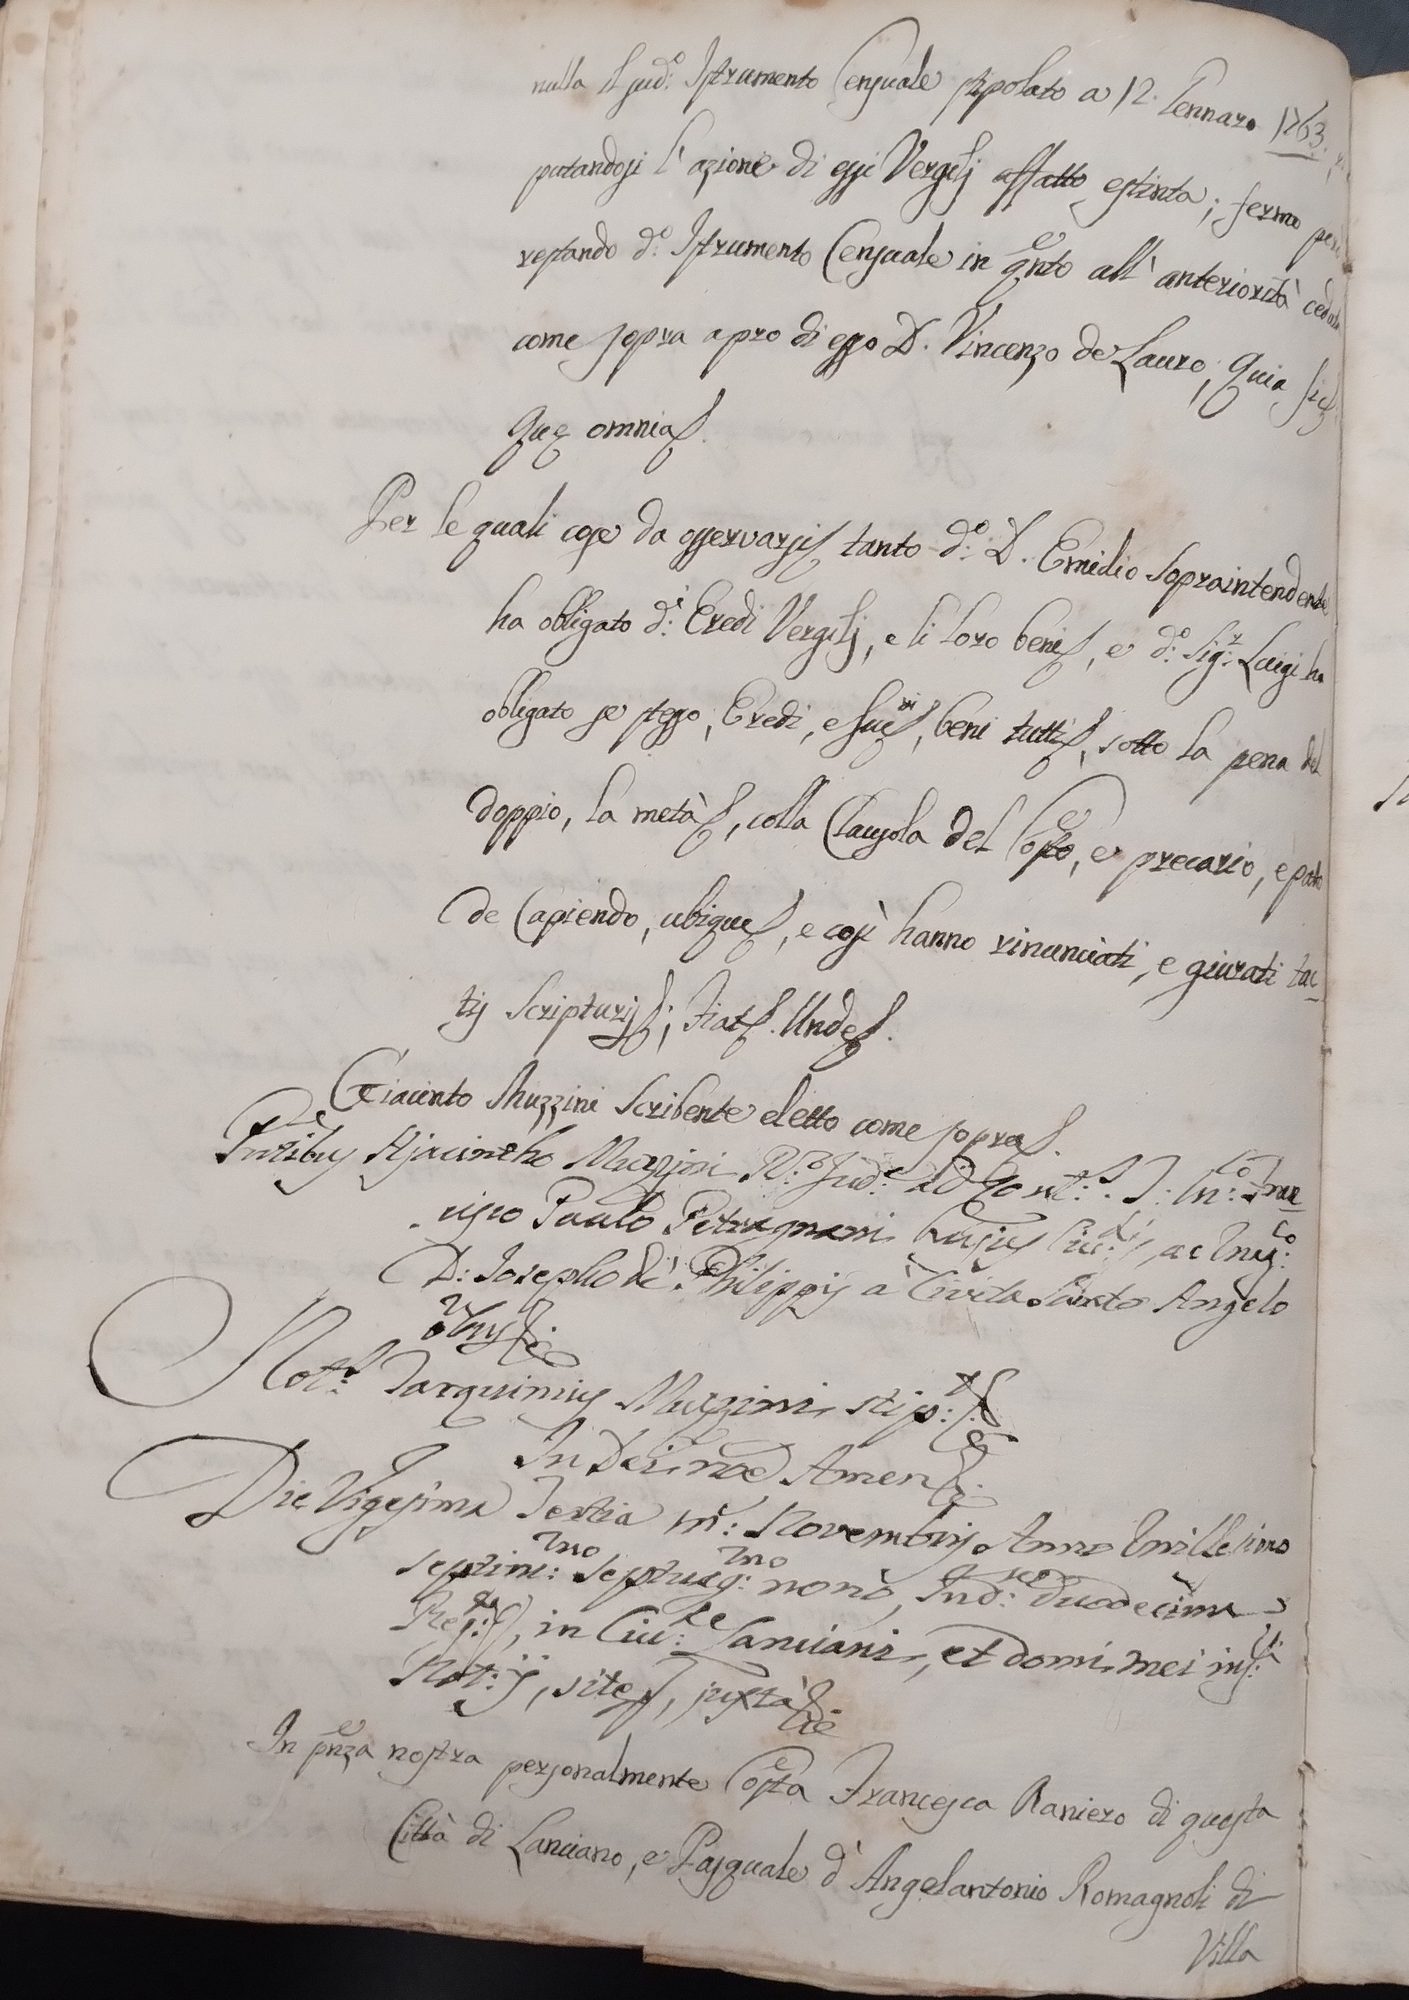 nulla il sud.o Istrumento Censuale stipolato a 12. Gennaro 1763,
putandosi l'azione di essi Vergilj affatto estinta; fermo però
restando d.o Istrumento Censuale in qnto all'anteriorità ceduta
come sopra a pro di esso D. Vincenzo de Lauro, Quia sic
Quæ omnia
Per le quali cose da osservarsi tanto d.o D. Emidio Sopraintendente
ha obligato d.i Eredi Vergilj, e li loro beni, e d.o Sig.r Luigi ha
obligato se stesso, Eredi, e suc.ri, beni tutti, sotto la pena del
doppio, la metà, colla Clausola del Costo, e precario, e pato
de Capiendo, ubique, e così hanno rinunciati, e giurati tac-
tis Scripturis; Fiat. Unde.
Giacinto Muzzini Scribente eletto come sopra
Pntibus Hjacintho Muzzini R.o Jud.e ad Cont.s . J: In: Fran
cisco Paulo Petragnani hujus Civ:, ac Mag:co
D: Josepho de Philippis a Civita Sancto Angelo
Not.s Tarquinius Muzzini stip:
In Dei noe Amen
Die Vigesima Tertia m: Novembris Anno millesimo
septin:mo septuag:mo nono, Ind: duodecima
Reg:, in Civ:te Lanciani, et domi mei inf:
Not:ij, site, juxta
In pnza nostra personalmente Costa Francesca Raniero di questa
Città di Lanciano, e Pasquale d'Angelantonio Romagnoli di
Villa